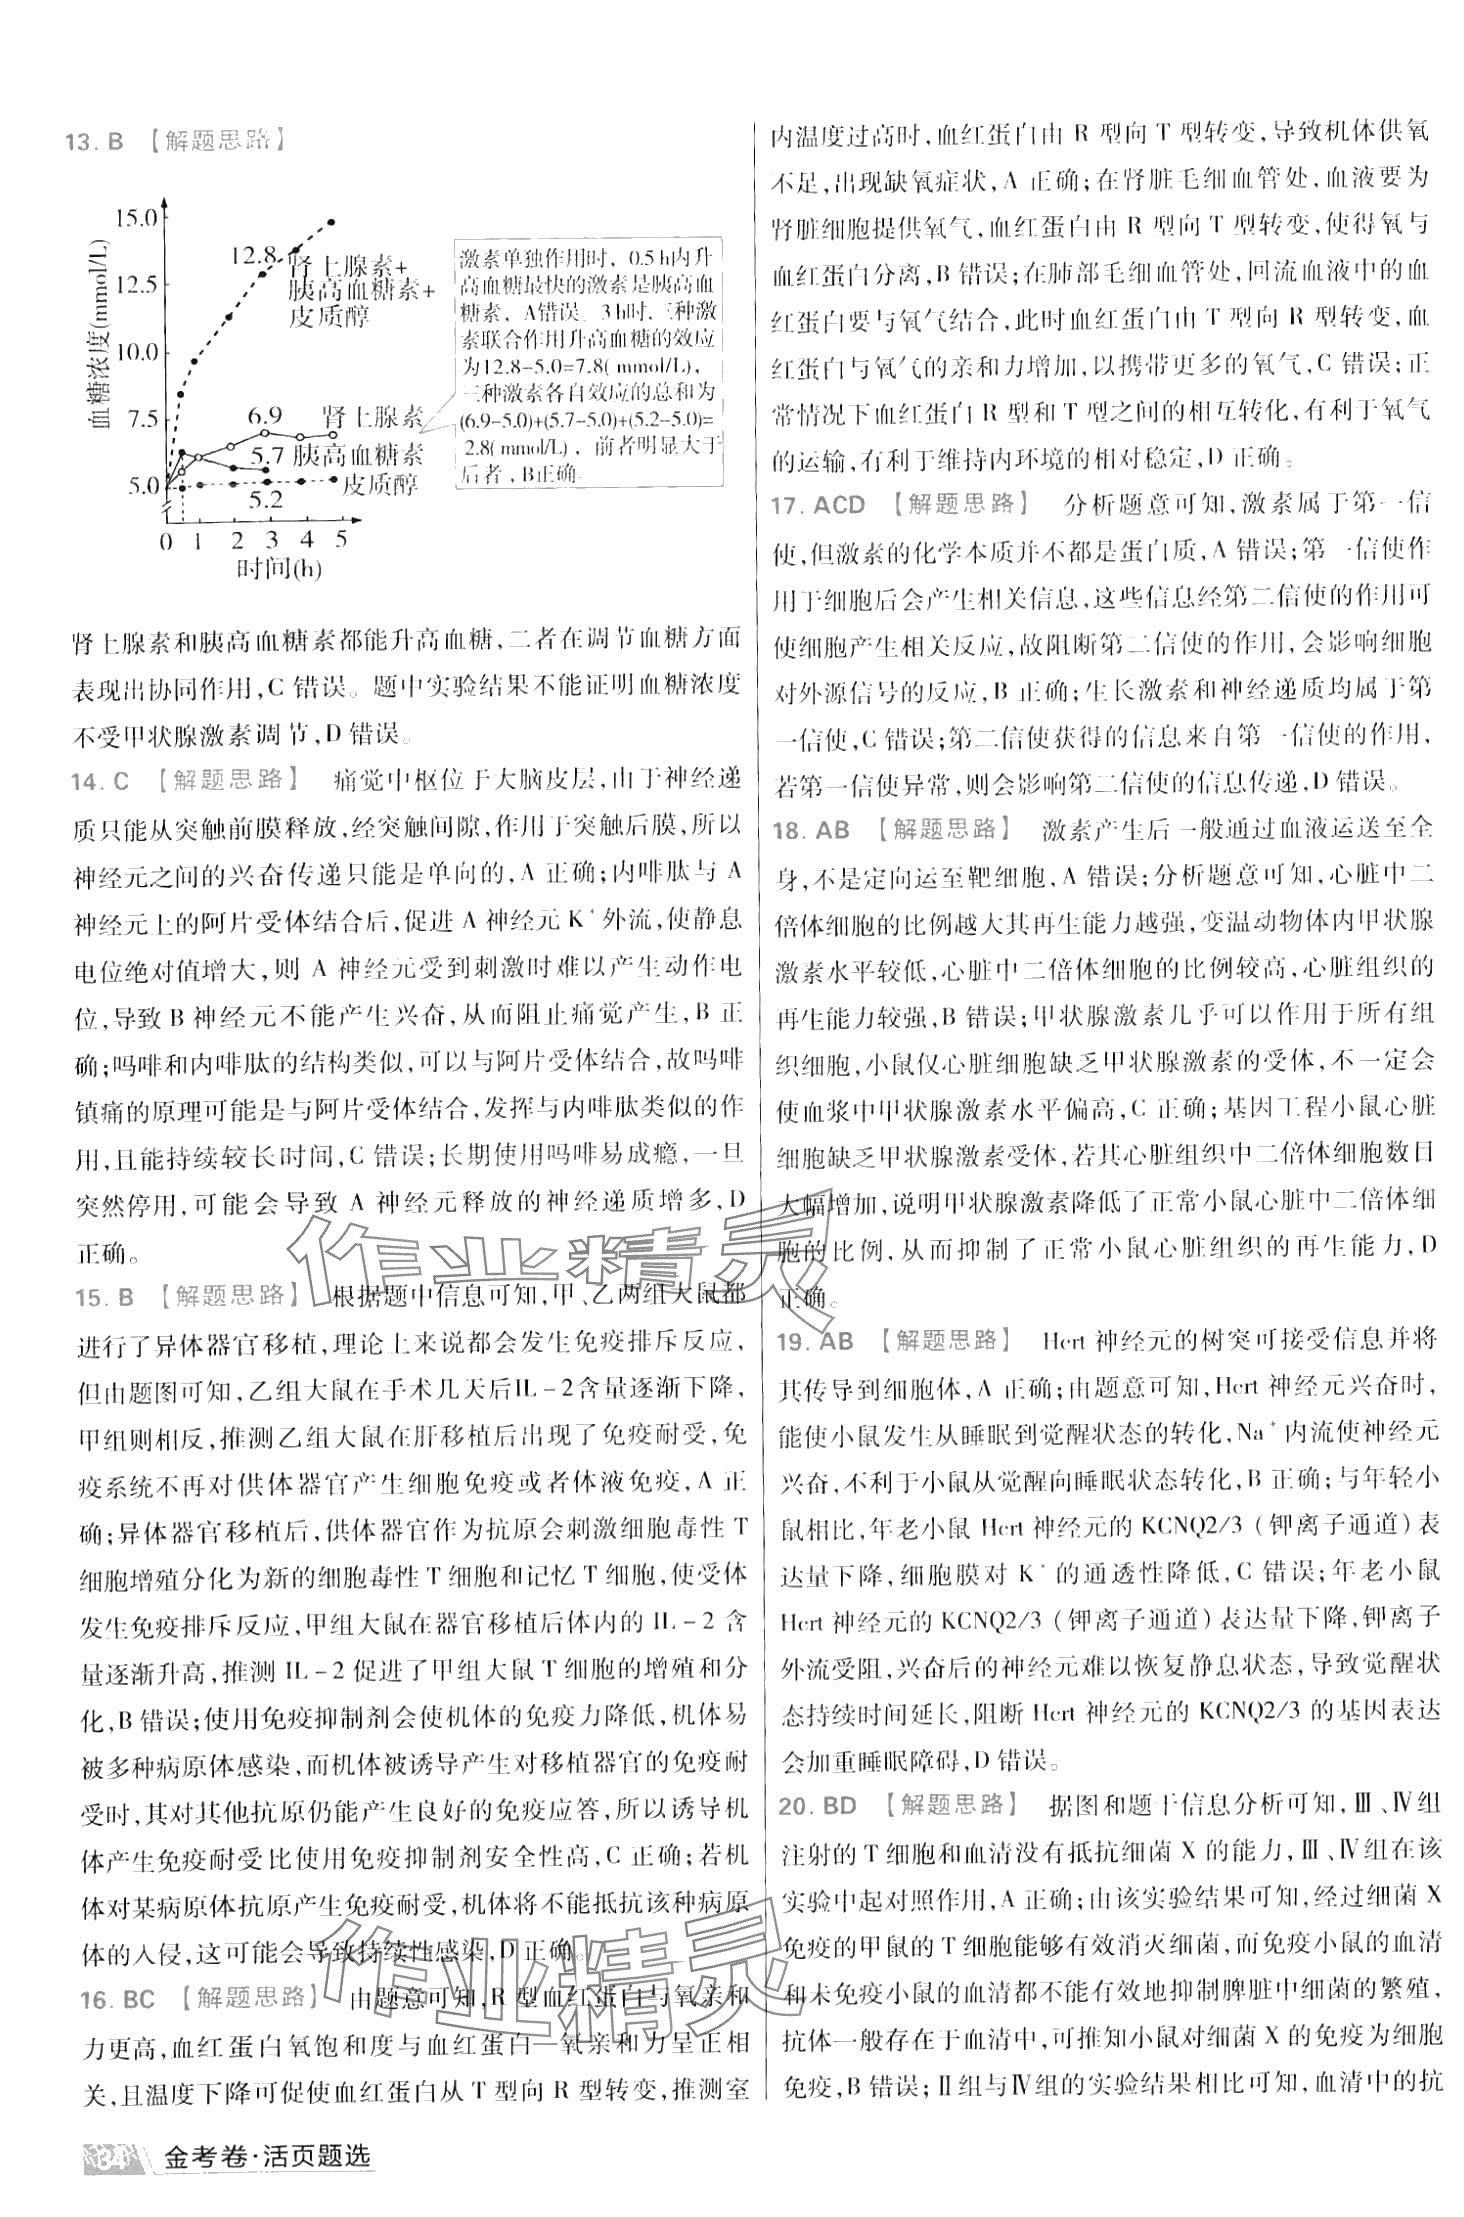 13. B 【解题思路】
血糖浓度(mmol/L)
15.0
12.5
10.0
7.5
5.0
12.8
肾上腺素+
胰高血糖素+
皮质醇
6.9 肾上腺素
5.7 胰高血糖素
皮质醇
5.2
0 1 2 3 4 5
时间(h)
激素单独作用时，0.5 h内升
高血糖最快的激素是胰高血
糖素，A错误。3 h时,三种激
素联合作用升高血糖的效应
为12.8-5.0=7.8( mmol/L)，
三种激素各自效应的总和为
(6.9-5.0)+(5.7-5.0)+(5.2-5.0)=
2.8( mmol/L)，前者明显大于
后者，B正确。
肾上腺素和胰高血糖素都能升高血糖,二者在调节血糖方面
表现出协同作用,C 错误。题中实验结果不能证明血糖浓度
不受甲状腺激素调节,D 错误。
14. C 【解题思路】 痛觉中枢位于大脑皮层,由于神经递
质只能从突触前膜释放,经突触间隙,作用于突触后膜,所以
神经元之间的兴奋传递只能是单向的,A 正确;内啡肽与 A
神经元上的阿片受体结合后,促进 A 神经元 K⁺ 外流,使静息
电位绝对值增大,则 A 神经元受到刺激时难以产生动作电
位,导致 B 神经元不能产生兴奋,从而阻止痛觉产生,B 正
确;吗啡和内啡肽的结构类似,可以与阿片受体结合,故吗啡
镇痛的原理可能是与阿片受体结合,发挥与内啡肽类似的作
用,且能持续较长时间,C 错误;长期使用吗啡易成瘾,一旦
突然停用,可能会导致 A 神经元释放的神经递质增多,D
正确。
15. B 【解题思路】 根据题中信息可知,甲、乙两组大鼠都
进行了异体器官移植,理论上来说都会发生免疫排斥反应,
但由题图可知,乙组大鼠在手术几天后IL-2含量逐渐下降,
甲组则相反,推测乙组大鼠在肝移植后出现了免疫耐受,免
疫系统不再对供体器官产生细胞免疫或者体液免疫,A 正
确;异体器官移植后,供体器官作为抗原会刺激细胞毒性 T
细胞增殖分化为新的细胞毒性 T 细胞和记忆 T 细胞,使受体
发生免疫排斥反应,甲组大鼠在器官移植后体内的 IL-2 含
量逐渐升高,推测 IL-2 促进了甲组大鼠 T 细胞的增殖和分
化,B 错误;使用免疫抑制剂会使机体的免疫力降低,机体易
被多种病原体感染,而机体被诱导产生对移植器官的免疫耐
受时,其对其他抗原仍能产生良好的免疫应答,所以诱导机
体产生免疫耐受比使用免疫抑制剂安全性高,C 正确;若机
体对某病原体抗原产生免疫耐受,机体将不能抵抗该种病原
体的入侵,这可能会导致持续性感染,D 正确。
16. BC 【解题思路】 由题意可知,R 型血红蛋白与氧亲和
力更高,血红蛋白氧饱和度与血红蛋白—氧亲和力呈正相
关,且温度下降可促使血红蛋白从 T 型向 R 型转变,推测室
内温度过高时,血红蛋白由 R 型向 T 型转变,导致机体供氧
不足,出现缺氧症状,A 正确;在肾脏毛细血管处,血液要为
肾脏细胞提供氧气,血红蛋白由 R 型向 T 型转变,使得氧与
血红蛋白分离,B 错误;在肺部毛细血管处,回流血液中的血
红蛋白要与氧气结合,此时血红蛋白由 T 型向 R 型转变,血
红蛋白与氧气的亲和力增加,以携带更多的氧气,C 错误;正
常情况下血红蛋白 R 型和 T 型之间的相互转化,有利于氧气
的运输,有利于维持内环境的相对稳定,D 正确。
17. ACD 【解题思路】 分析题意可知,激素属于第一信
使,但激素的化学本质并不都是蛋白质,A 错误;第一信使作
用于细胞后会产生相关信息,这些信息经第二信使的作用可
使细胞产生相关反应,故阻断第二信使的作用,会影响细胞
对外源信号的反应,B 正确;生长激素和神经递质均属于第
一信使,C 错误;第二信使获得的信息来自第一信使的作用,
若第一信使异常,则会影响第二信使的信息传递,D 错误。
18. AB 【解题思路】 激素产生后一般通过血液运送至全
身,不是定向运至靶细胞,A 错误;分析题意可知,心脏中二
倍体细胞的比例越大其再生能力越强,变温动物体内甲状腺
激素水平较低,心脏中二倍体细胞的比例较高,心脏组织的
再生能力较强,B 错误;甲状腺激素几乎可以作用于所有组
织细胞,小鼠仅心脏细胞缺乏甲状腺激素的受体,不一定会
使血浆中甲状腺激素水平偏高,C 正确;基因工程小鼠心脏
细胞缺乏甲状腺激素受体,若其心脏组织中二倍体细胞数目
大幅增加,说明甲状腺激素降低了正常小鼠心脏中二倍体细
胞的比例,从而抑制了正常小鼠心脏组织的再生能力,D
正确。
19. AB 【解题思路】 Hcrt 神经元的树突可接受信息并将
其传导到细胞体,A 正确;由题意可知,Hcrt 神经元兴奋时,
能使小鼠发生从睡眠到觉醒状态的转化,Na⁺ 内流使神经元
兴奋,不利于小鼠从觉醒向睡眠状态转化,B 正确;与年轻小
鼠相比,年老小鼠 Hcrt 神经元的 KCNQ2/3（钾离子通道）表
达量下降,细胞膜对 K⁺ 的通透性降低,C 错误;年老小鼠
Hcrt 神经元的 KCNQ2/3（钾离子通道）表达量下降,钾离子
外流受阻,兴奋后的神经元难以恢复静息状态,导致觉醒状
态持续时间延长,阻断 Hcrt 神经元的 KCNQ2/3 的基因表达
会加重睡眠障碍,D 错误。
20. BD 【解题思路】 据图和题干信息分析可知,Ⅲ、Ⅳ组
注射的 T 细胞和血清没有抵抗细菌 X 的能力,Ⅲ、Ⅳ组在该
实验中起对照作用,A 正确;由该实验结果可知,经过细菌 X
免疫的甲鼠的 T 细胞能够有效消灭细菌,而免疫小鼠的血清
和未免疫小鼠的血清都不能有效地抑制脾脏中细菌的繁殖,
抗体一般存在于血清中,可推知小鼠对细菌 X 的免疫为细胞
免疫,B 错误;Ⅱ组与Ⅳ组的实验结果相比可知,血清中的抗
作业精灵
作业精灵
34 金考卷·活页题选